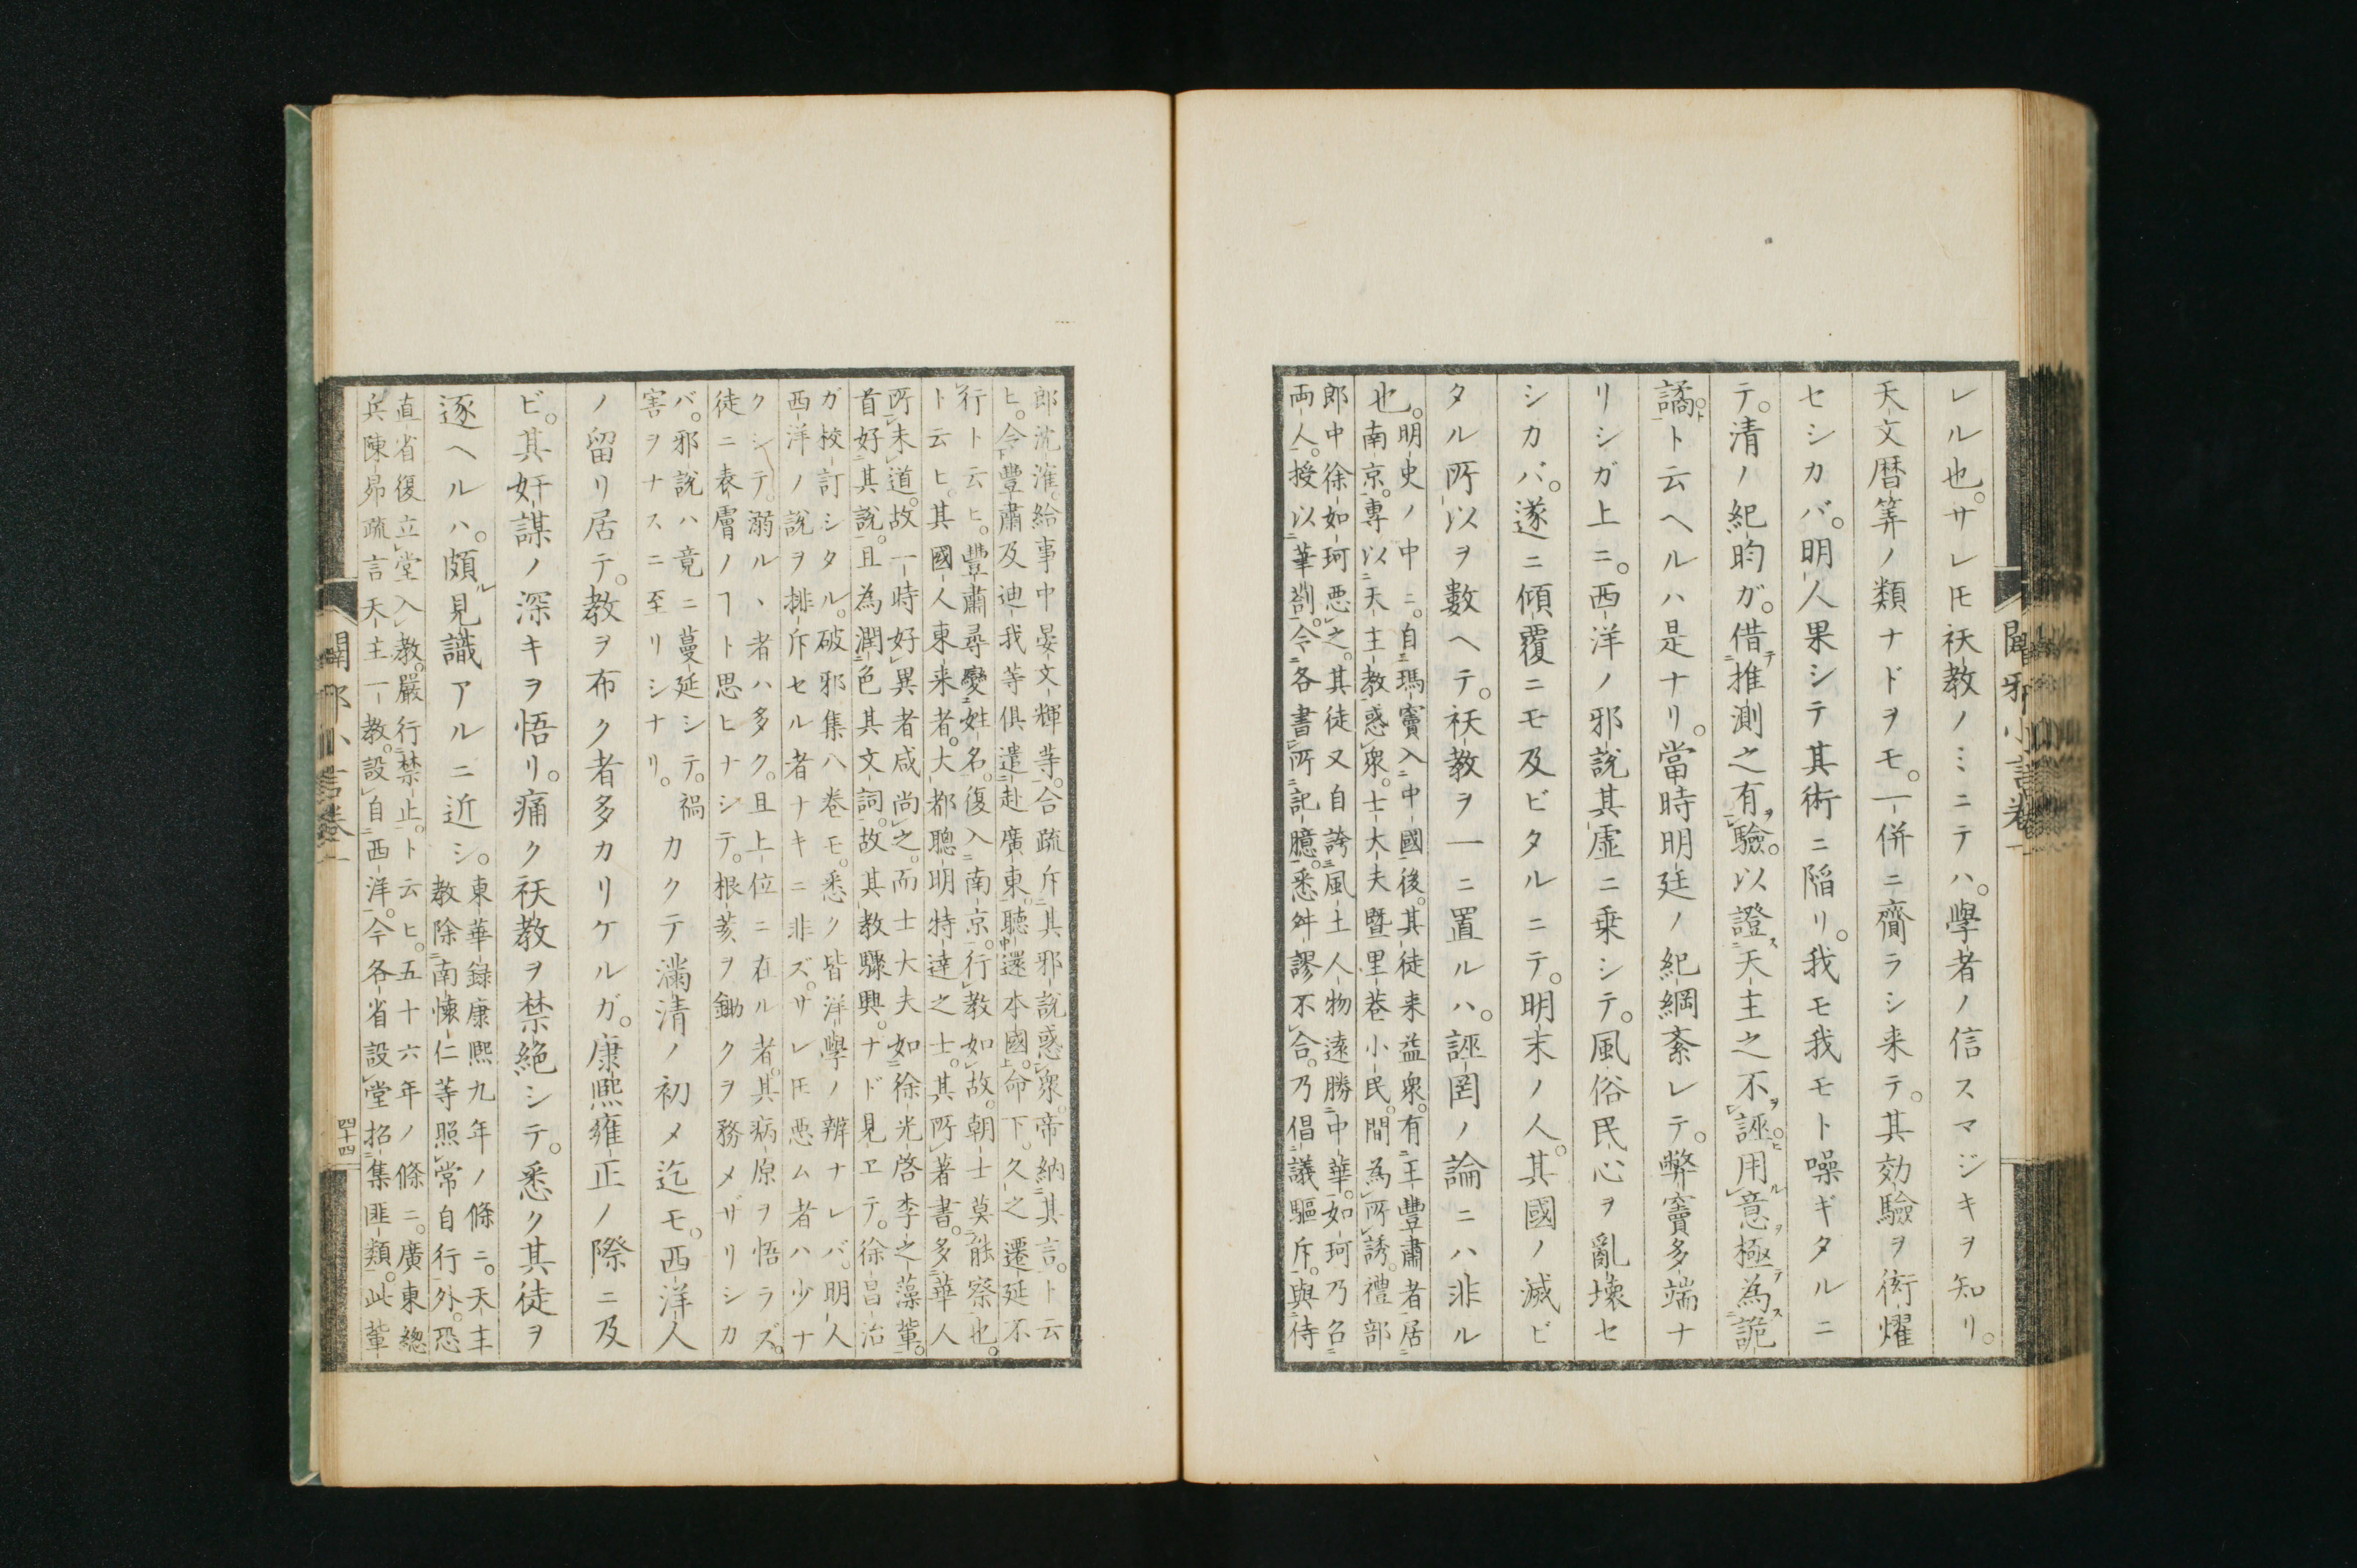 レル也。サレ𪜈祅教ノミニテハ。學者ノ信スマジキヲ知リ。
天文暦筭ノ類ナドヲモ。一併ニ齎ラシ来テ。其効驗ヲ衒燿
セシカバ。明人果シテ其術ニ陥リ。我モ我モト噪ギタルニ
テ。清ノ紀昀ガ。借テ推測之有ヲ驗。以證ス天主之不ヲ誣ヒ用ル意ヲ極テ為ス詭
譎。トト云ヘルハ是ナリ。當時明廷ノ紀綱紊レテ。弊竇多端ナ
リシガ上ニ。西洋ノ邪説其虚ニ乗シテ。風俗民心ヲ亂壊セ
シカバ。遂ニ傾覆ニモ及ビタルニテ。明末ノ人。其國ノ滅ビ
タル所以ヲ數ヘテ。祅教ヲ一ニ置ルハ。誣罔ノ論ニハ非ル
也。明史ノ中ニ。自瑪竇入中國後。其徒来益衆。有王豐肅者居
南京。専以天主教惑衆。士大夫暨里巷小民。間為所誘。禮部
郎中徐如珂悪之。其徒又自誇風土人物遠勝中華。如珂乃召
両人。授以筆劄。令各書所記臆。悉舛謬不合。乃倡議驅斥。與侍
闢邪小言卷一
郎沈㴶。給事中晏文輝等。合疏斥其邪説惑衆。帝納其言。ト云
ヒ。令豐肅及迪我等俱遣赴廣東。聴還本國。命下。久之遷延不
行ト云ヒ。豐肅尋變姓名。復入南京。行教如故。朝士莫能察也。
ト云ヒ。其國人東来者。大都聰明特達之士。其所著書。多華人
所未道。故一時好異者咸尚之。而士大夫如徐光啓李之藻輩。
首好其説。且為潤色其文詞。故其教驟興。ナド見ヱテ。徐昌治
ガ校訂シタル。破邪集八巻モ。悉ク皆洋學ノ辨ナレバ。明人
西洋ノ説ヲ排斥セル者ナキニ非ズ。サレ𪜈悪ム者ハ少ナ
クシテ。溺ルヽ者ハ多ク。且上位ニ在ル者。其病原ヲ悟ラズ。
徒ニ表膚ノヿト思ヒナシテ。根荄ヲ鋤クヲ務メザリシカ
バ。邪説ハ竟ニ蔓延シテ。禍
害ヲナスニ至リシナリ。カクテ滿清ノ初メ迄モ。西洋人
ノ留リ居テ。教ヲ布ク者多カリケルガ。康熙雍正ノ際ニ及
ビ。其奸謀ノ深キヲ悟リ。痛ク祅教ヲ禁絶シテ。悉ク其徒ヲ
逐ヘルハ。頗ル見識アルニ近シ。東華録康熙九年ノ條ニ。天主
教除南懐仁等照常自行外。恐
直省復立堂入教。嚴行禁止。ト云ヒ。五十六年ノ條ニ。廣東總
兵陳昴疏言天主一教。設自西洋。今各省設堂招集匪類。此輩
闢邪小言卷一
四十四